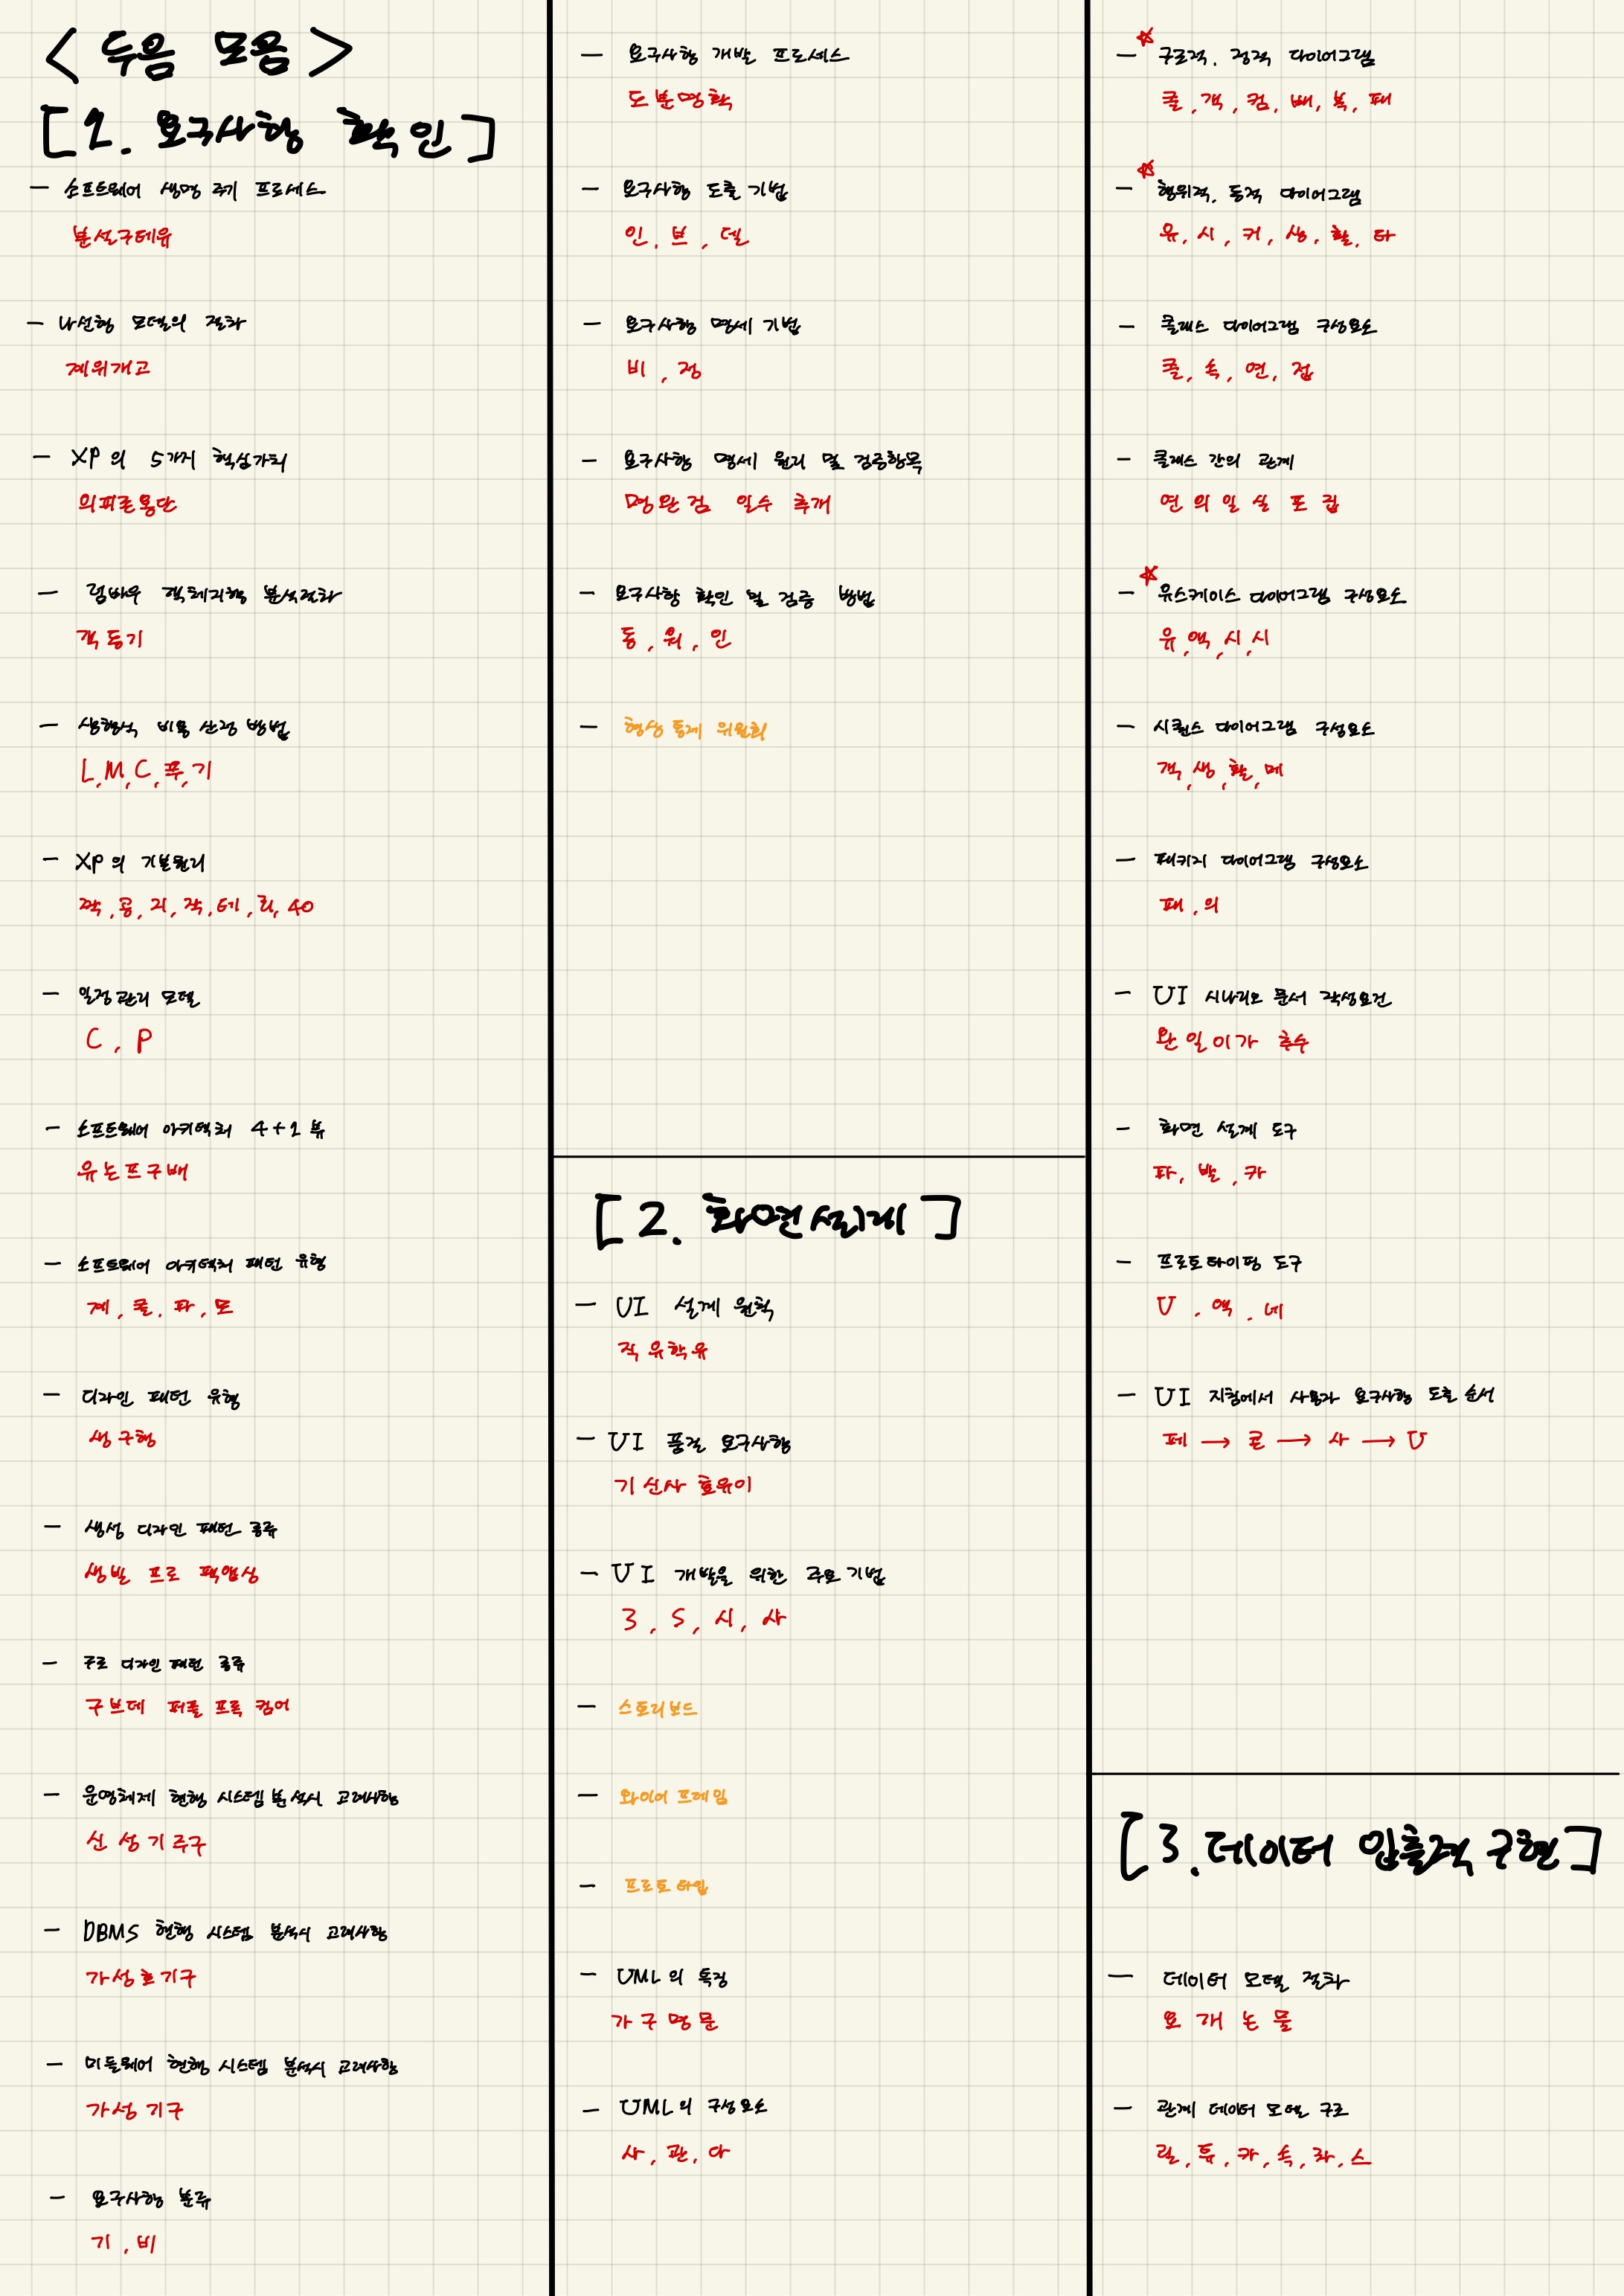 < 두음 모음 >
[1. 요구사항 확인]
- 소프트웨어 생명 주기 프로세스
분설구테유
- 나선형 모델의 절차
계위개고
- XP의 5가지 핵심가치
의피존용단
- 럼바우 객체지향 분석절차
객동기
- 상향식 비용 산정 방법
L, M, C, 푸, 기
- XP의 기본원리
짝, 공, 지, 작, 테, 리, 40
- 일정관리 모델
C, P
- 소프트웨어 아키텍처 4+1 뷰
유논프구배
- 소프트웨어 아키텍처 패턴 유형
계, 클, 파, 모
- 디자인 패턴 유형
생구행
- 생성 디자인 패턴 종류
생빌 프로 팩앱싱
- 구조 디자인 패턴 종류
구브데 퍼플 프록 컴어
- 운영체제 현행 시스템 분석시 고려사항
신성기주구
- DBMS 현행 시스템 분석시 고려사항
가성호기구
- 미들웨어 현행 시스템 분석시 고려사항
가성기구
- 요구사항 분류
기, 비
- 요구사항 개발 프로세스
도분명확
- 요구사항 도출 기법
인, 브, 델
- 요구사항 명세 기법
비, 정
- 요구사항 명세 원리 및 검증항목
명완검 일수 추개
- 요구사항 확인 및 검증 방법
동, 워, 인
- 형상 통제 위원회
[2. 화면설계]
- UI 설계 원칙
직유학유
- UI 품질 요구사항
기신사 효유이
- UI 개발을 위한 주요 기법
3, S, 시, 사
- 스토리보드
- 와이어 프레임
- 프로토 타입
- UML의 특징
가구명문
- UML의 구성요소
사, 관, 다
- ☆ 구조적, 정적 다이어그램
클, 객, 컴, 배, 복, 패
- ☆ 행위적, 동적 다이어그램
유, 시, 커, 상, 활, 타
- 클래스 다이어그램 구성요소
클, 속, 연, 접
- 클래스 간의 관계
연 의 일 실 포 집
- ☆ 유스케이스 다이어그램 구성요소
유, 액, 시, 시
- 시퀀스 다이어그램 구성요소
객, 생, 활, 메
- 패키지 다이어그램 구성요소
패, 의
- UI 시나리오 문서 작성요건
완일이가 추수
- 화면 설계 도구
파, 발, 카
- 프로토타이핑 도구
U, 액, 네
- UI 지침에서 사용자 요구사항 도출 순서
페 → 콘 → 사 → U
[3. 데이터 입출력 구현]
- 데이터 모델 절차
요 개 논 물
- 관계 데이터 모델 구조
릴, 튜, 카, 속, 차, 스